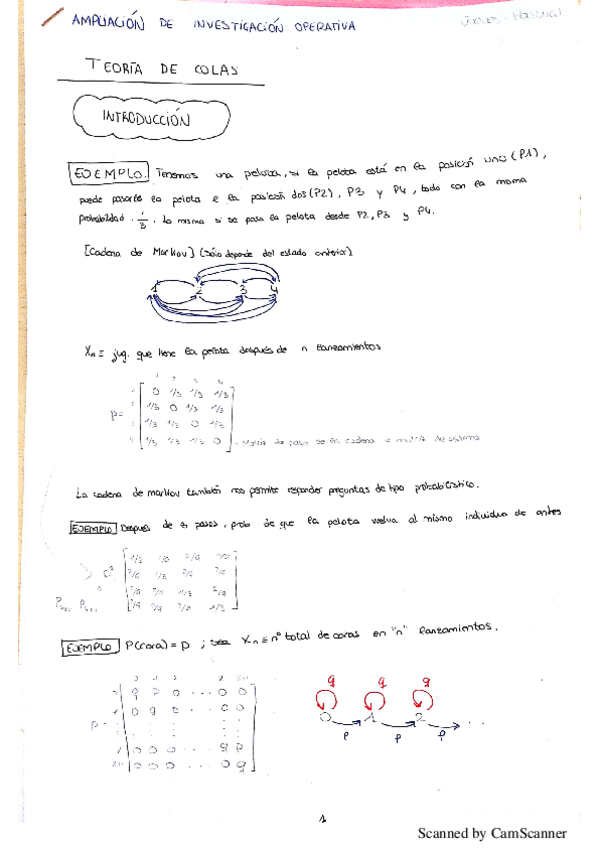 AMPLIACIÓN DE INVESTIGACIÓN OPERATIVA
TEORÍA DE COLAS
INTRODUCCIÓN
EJEMPLO. Tenemos una pelota, si la pelota está en la posición uno (P1),
puede pasarle la pelota a la posición dos (P2), P3 y P4, todo con la misma
probabilidad. 1/3. Lo mismo si se pasa la pelota desde P2, P3 y P4.
[Cadena de Markov] (Sólo depende del estado anterior)
1 2 3 4
Xn ≡ jug. que tiene la pelota después de n lanzamientos
1 2 3 4
1 0 1/3 1/3 1/3
2 1/3 0 1/3 1/3
P= 3 1/3 1/3 0 1/3
4 1/3 1/3 1/3 0
La cadena de markov también nos permite responder preguntas de tipo probabilístico.
EJEMPLO Después de pases, prob de que la pelota vuelva al mismo individuo de antes
P²
1/3 2/9 2/9 2/9
2/9 1/3 2/9 2/9
2/9 2/9 1/3 2/9
2/9 2/9 2/9 1/3
EJEMPLO P(cara) = p ; sea Xn ≡ nº total de caras en "n" lanzamientos.
q p 0 ... 0 0
0 q ... 0 0
P =
0 0 0 ... q p
0 0 0 ... 0 q
q q q
0 1 2 ...
p p p
1
Scanned by CamScanner